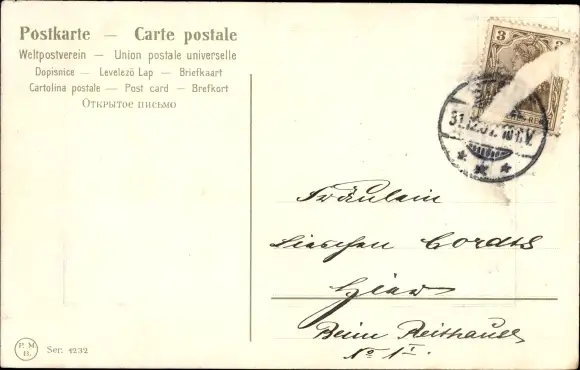 Postkarte — Carte postale
Weltpostverein — Union postale universelle
Dopisnice — Levelező Lap — Briefkaart
Cartolina postale — Post card — Brefkort
Открытое письмо
3
31.12.07. 10-11.V.
Fräulein
Lieschen Cordts
Hier
Beim Reithause
No 1 I.
P. M.
B.
Ser. 1232